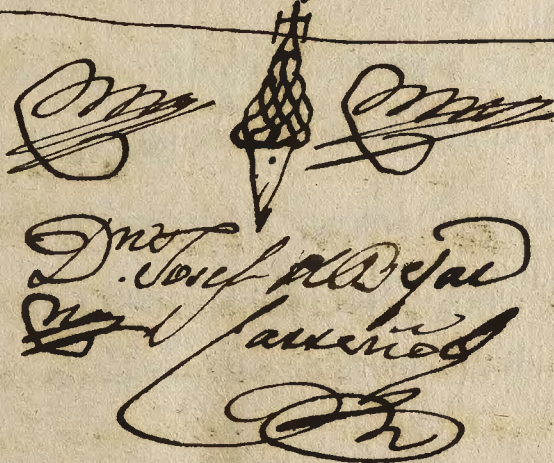 Dn. Josef de Bejar
Carreño